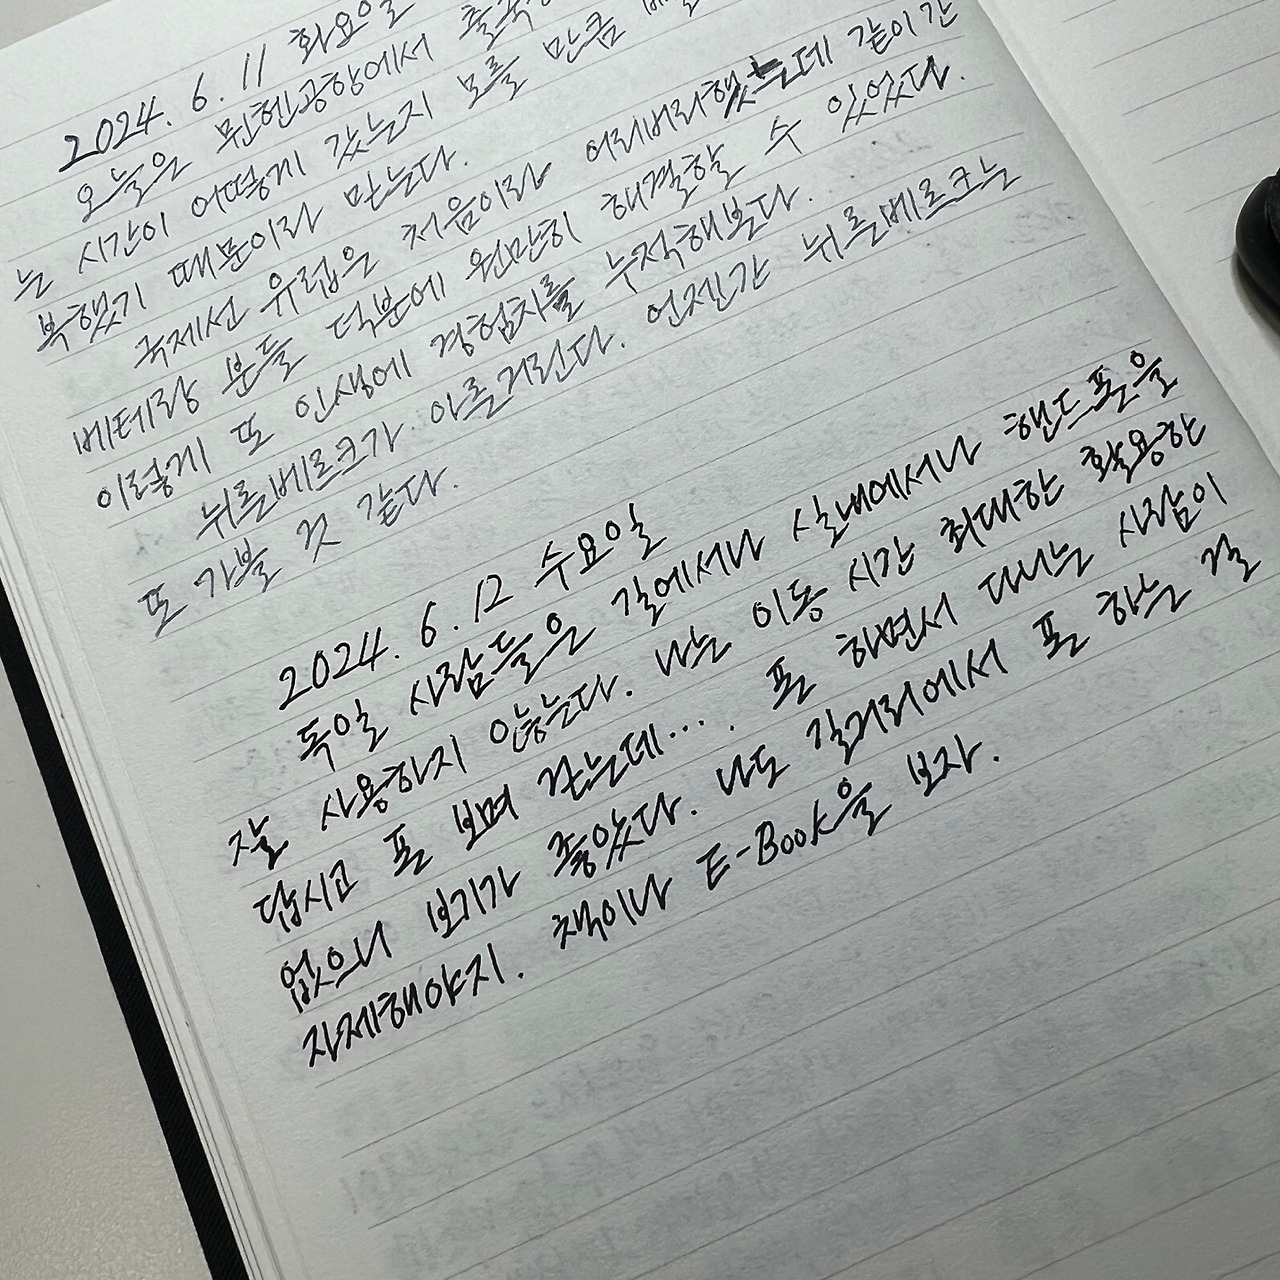 2024. 6. 11 화요일
오늘은 뮌헨공항에서
는 시간이 어떻게 갔는지 모를 만큼
복했기 때문이라 만는다.
국제선 유럽은 처음이라 어리버리했는데 같이 간
베테랑 분들 덕분에 원만히 해결할 수 있었다.
이렇게 또 인생에 경험치를 누적해본다.
뉘른베르크가 아른거린다. 언젠간 뉘른베르크는
또 가볼 것 같다.
2024. 6. 12 수요일
독일 사람들은 길에서나 실내에서나 핸드폰을
잘 사용하지 않는다. 나는 이동 시간 최대한 활용한
답시고 폰 보며 걷는데... 폰 하면서 다니는 사람이
없으니 보기가 좋았다. 나도 길거리에서 폰 하는 걸
자제해야지. 책이나 E-Book을 보자.